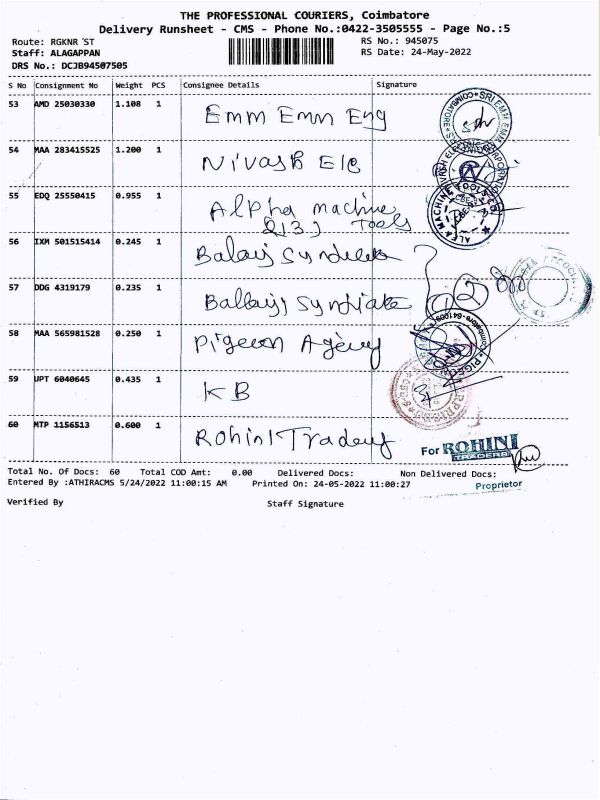 THE PROFESSIONAL COURIERS, Coimbatore
Delivery Runsheet - CMS - Phone No.:0422-3505555 - Page No.:5
Route: RGKNR ST
RS No.: 945075
Staff: ALAGAPPAN
RS Date: 24-May-2022
DRS No.: DCJB94507505
S No Consignment No Weight PCS Consignee Details Signature
53 AMD 25030330 1.108 1 Emm Emm Eng
54 MAA 283415525 1.200 1 Nivash Ele
55 EDQ 25550415 0.955 1 Alpha machine
Tools
56 IXM 501515414 0.245 1 Balaji Syndicate
57 DDG 4319179 0.235 1 Ballaji Syndicate
58 MAA 565981528 0.250 1 Pigeon Agency
59 UPT 6040645 0.435 1 KB
60 MTP 1156513 0.600 1 Rohini Traders
For ROHINI
TRADERS
Proprietor
Total No. Of Docs: 60 Total COD Amt: 0.00 Delivered Docs: Non Delivered Docs:
Entered By :ATHIRACMS 5/24/2022 11:00:15 AM Printed On: 24-05-2022 11:00:27
Verified By Staff Signature